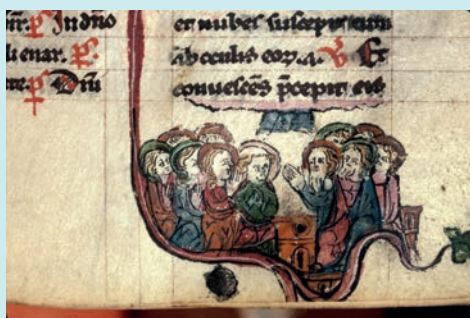 nr. P. In dño
li enar. P.
re. P Dñi
et nubes suscepit eum
ab oculis eor. a. V Et
convescẽs p̃cepit eis